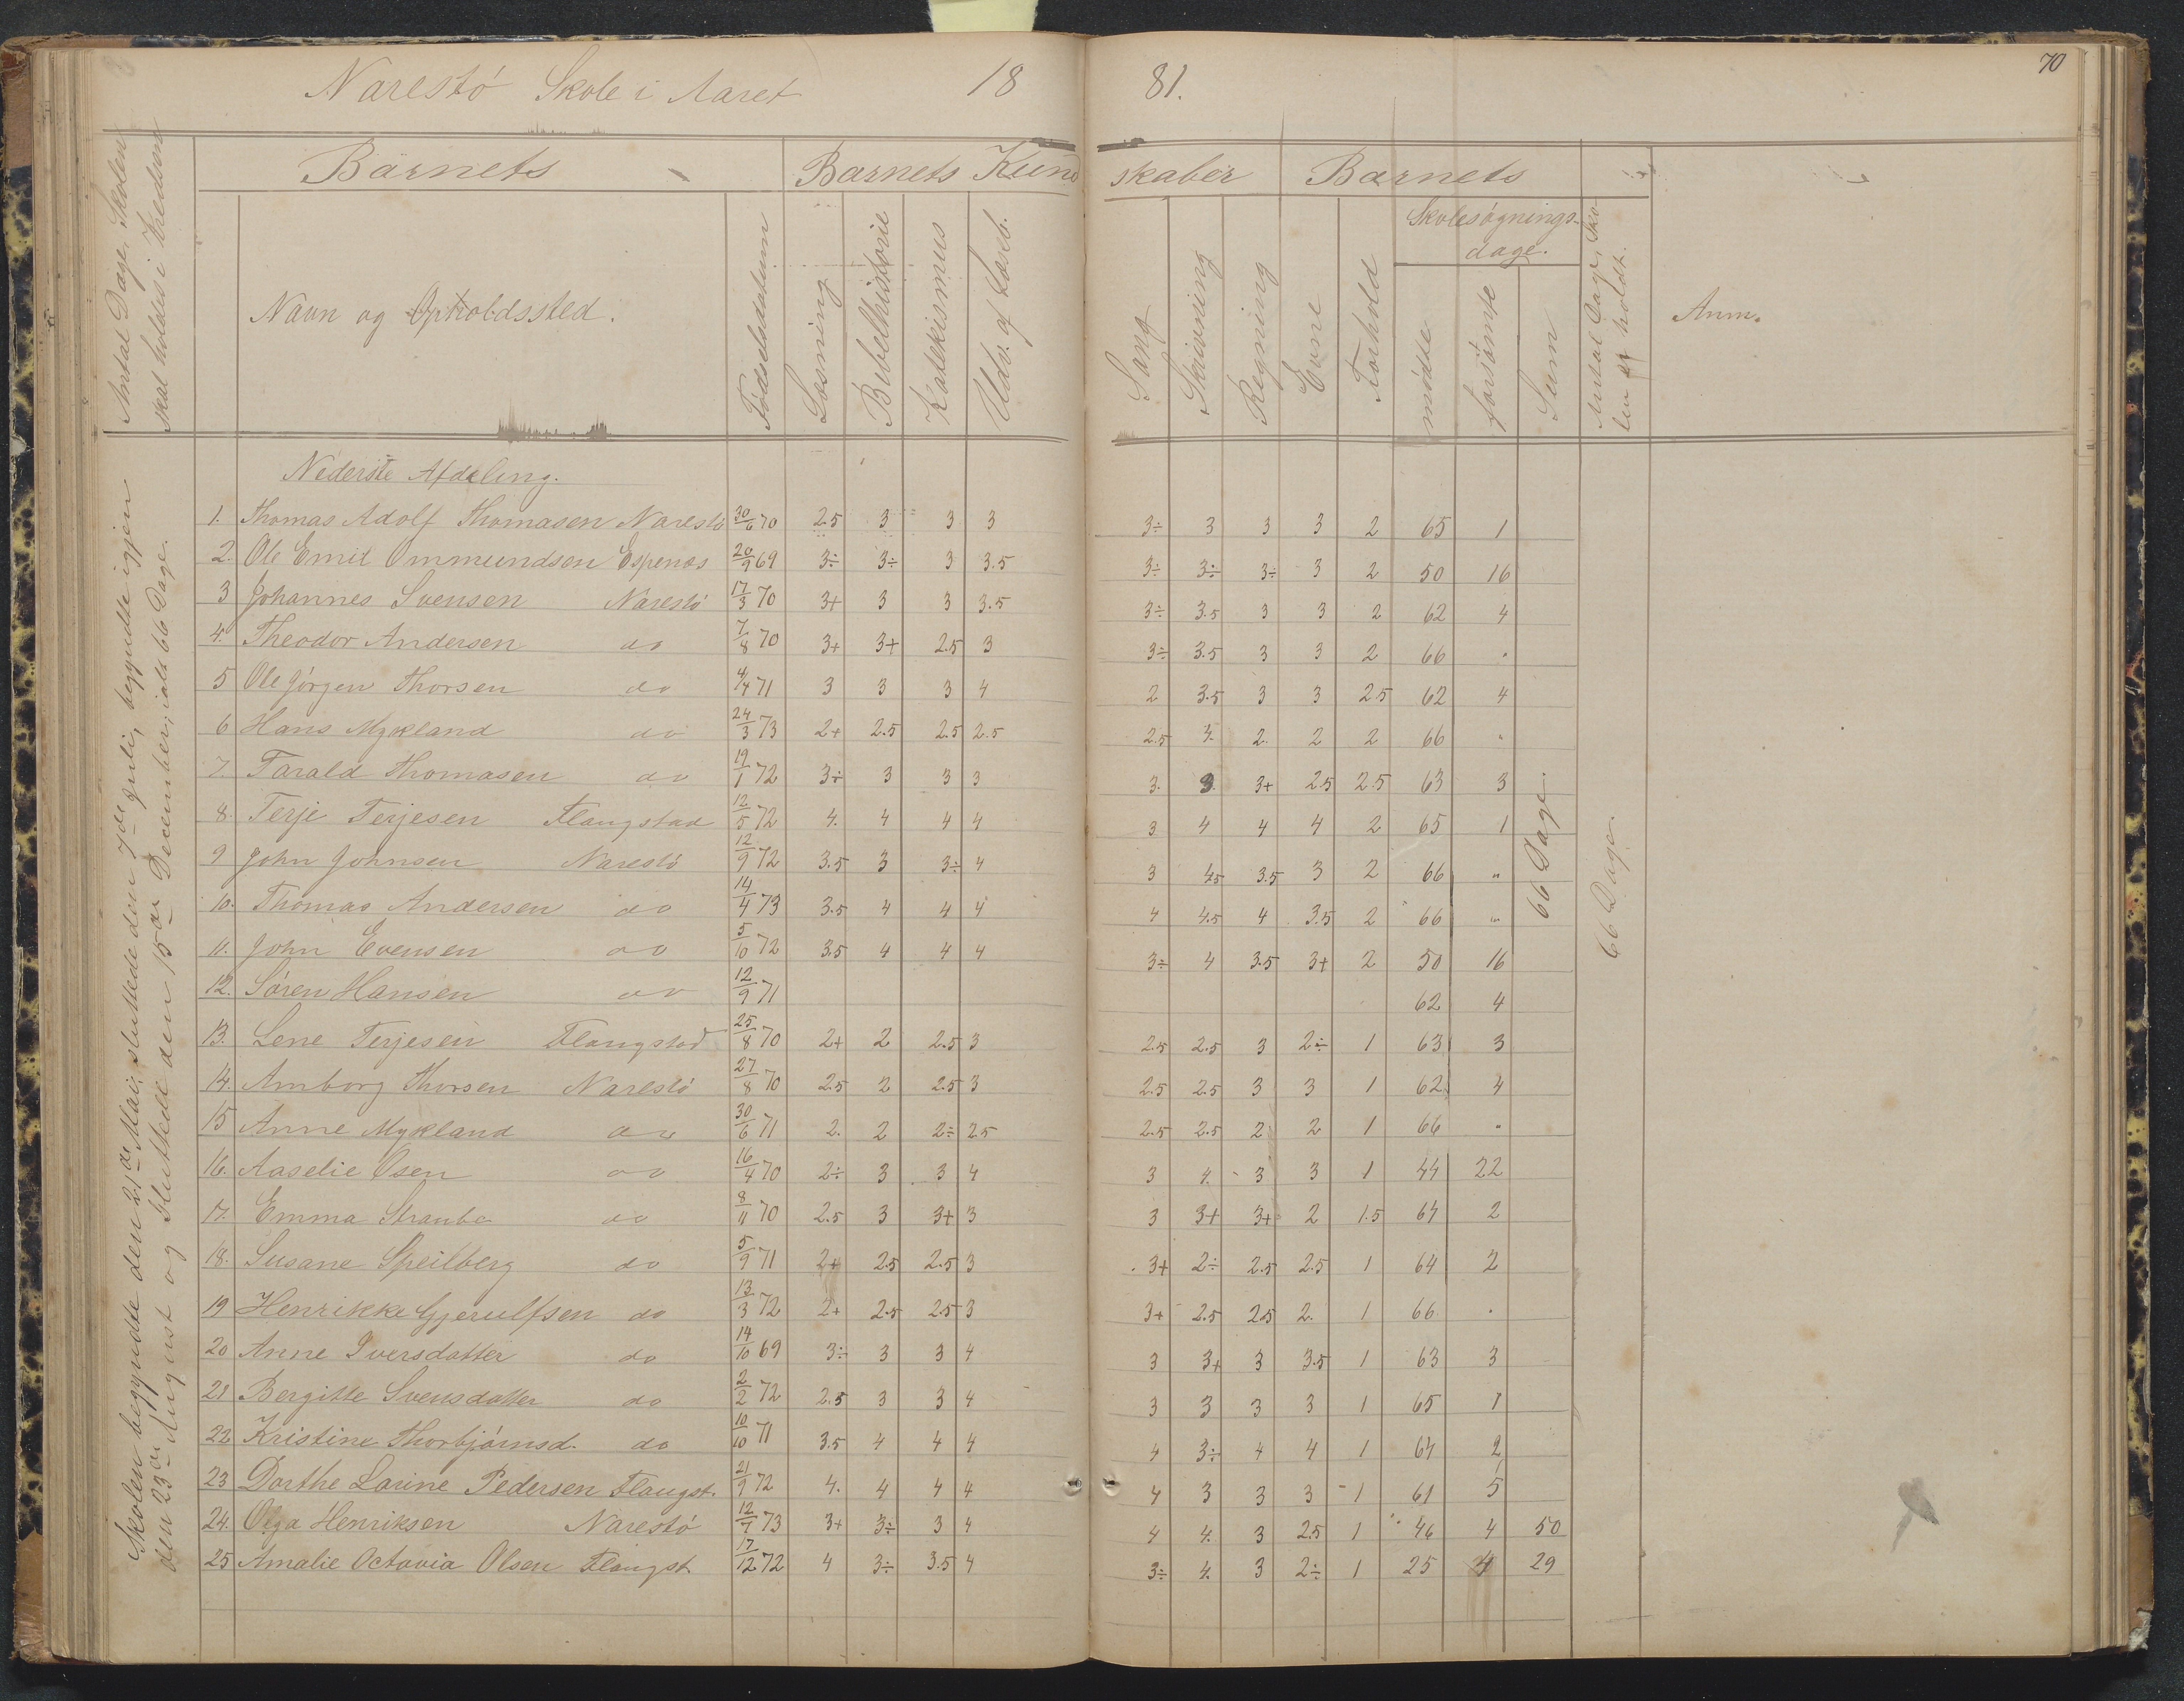 70
Narestö Skole i Aaret 1881.
Antal Dage, Skolen skal holdes i Kredsen
Barnets
Barnets Kundskaber
Barnets
Navn og Opholdssted.
Födselsdatum
Læsning
Bibelhistorie
Katekismus
Udv. af Læseb.
Sang
Skrivning
Regning
Evne
Forhold
Skolesögnings-
dage.
mödte
forsömte
Sum
Antal Dage, Sko-
len er holdt.
Anm.
Skolen begyndte den 21de Mai; sluttede den 7de Juli, begyndte igjen
den 23de August og sluttede den 15de December, ialt 66 Dage.
Nederste Afdeling.
1. Thomas Adolf Thomasen Narestö 30/6 70 2.5 3 3 3 3÷ 3 3 3 2 65 1
2. Ole Emil Ommundsen Espenæs 20/9 69 3÷ 3÷ 3 3.5 3÷ 3÷ 3÷ 3 2 50 16
3 Johannes Svensen Narestö 17/3 70 3+ 3 3 3.5 3÷ 3.5 3 3 2 62 4
4. Theodor Andersen do 7/8 70 3+ 3+ 2.5 3 3÷ 3.5 3 3 2 66 "
5 Ole Jörgen Thorsen do 4/4 71 3 3 3 4 2 3.5 3 3 2.5 62 4
6 Hans Mykland do 24/3 73 2+ 2.5 2.5 2.5 2.5 2. 2 2 66 "
7. Tarald Thomasen do 19/1 72 3÷ 3 3 3 3. 3. 3+ 2.5 2.5 63 3
8. Terje Terjesen Flangstad 12/5 72 4. 4 4 4 3 4 4 4 2 65 1
9 John Johnsen Narestö 12/9 72 3.5 3 3÷ 4 3 4.5 3.5 3 2 66 "
10. Thomas Andersen do 14/4 73 3.5 4 4 4 4 4.5 4 3.5 2 66 "
11. John Evensen do 5/10 72 3.5 4 4 4 3÷ 4 3.5 3+ 2 50 16
12. Sören Hansen do 12/9 71 62 4
13. Lene Terjesen Flangstad 25/8 70 2+ 2 2.5 3 2.5 2.5 3 2÷ 1 63 3
14. Amborg Thorsen Narestö 27/8 70 2.5 2 2.5 3 2.5 2.5 3 3 1 62 4
15 Anne Mykland do 30/6 71 2. 2 2÷ 2.5 2.5 2.5 2 2 1 66 "
16. Aaselie Osen do 16/4 70 2÷ 3 3 4 3 4. 3 3 1 44 22
17. Emma Straube do 8/11 70 2.5 3 3+ 3 3 3+ 3+ 2 1.5 64 2
18. Susane Speilberg do 5/9 71 2+ 2.5 2.5 3 3+ 2÷ 2.5 2.5 1 64 2
19 Henrikke Gjerulfsen do 13/3 72 2+ 2.5 2.5 3 3+ 2.5 2.5 2. 1 66 "
20 Anne Iversdatter do 14/10 69 3÷ 3 3 4 3 3+ 3 3.5 1 63 3
21 Bergitte Svensdatter do 2/2 72 2.5 3 3 4 3 3 3 3 1 65 1
22 Kristine Thorbjörnsd. do 10/10 71 3.5 4 4 4 4 3÷ 4 4 1 64 2
23 Dorthe Larine Pedersen Flangst. 21/9 72 4. 4 4 4 4 3 3 3 1 61 5
24. Olga Henriksen Narestö 12/7 73 3+ 3÷ 3 4 4 4. 3 2.5 1 46 4 50
25 Amalie Octavia Olsen Flangst. 17/12 72 4 3÷ 3.5 4 3÷ 4. 3 2÷ 1 25 4 29
66 Dage.
66 Dage.